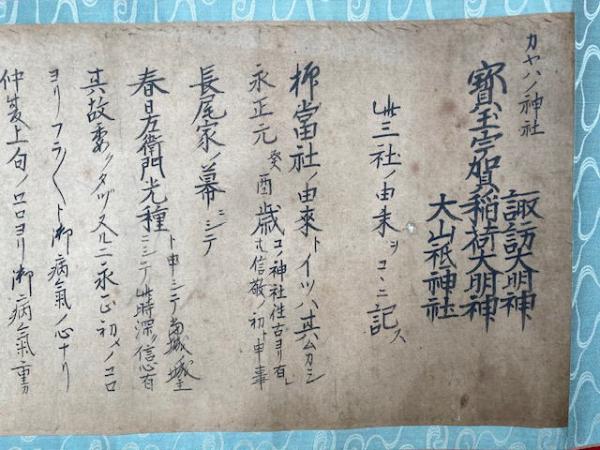 カヤハノ神社
諏訪大明神
寳玉宇賀稲荷大明神
大山祇神社
此三社ノ由来ヲコヽニ記ス
抑當社ノ由來トイツハ其ムカシ
永正元癸酉歳コノ神社往古ヨリ有
信敬ノ初ト申事
長尾家ノ幕ニシテ
春日左衛門光種ト申シテ
ニシテ此時深ク信心有
其故ヲタヅヌルニ永正初メノコロ
ヨリフラ〱ト御病氣ノ心ナリ
仲夏上旬ノコロヨリ御病氣重